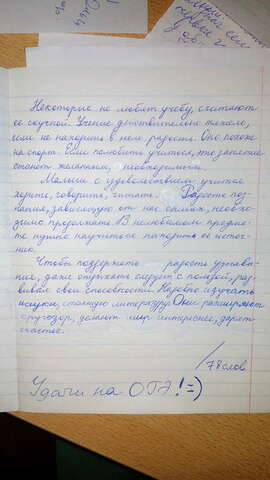 Некоторые не любят учебу, считают
ее скучной. Учение действительно тяжело,
если не находить в нем радость. Оно похоже
на спорт. Если полюбить учиться, это занятие
станет желанным, необходимым.
Малыши с удовольствием учатся
ходить, говорить, читать. Радость поз-
нания, зависящую от нас самих, необхо-
димо продолжать. В нелюбимом предме-
те нужно научиться находить её источ-
ник.
Чтобы поддержать радость узнава-
ния, даже отдыхать следует с пользой, раз-
вивая свои способности. Надобно изучать
науки, стоящую литературу. Они расширяют
кругозор, делают мир интереснее, дарят
счастье.
/78 слов
Удачи на ОГЭ! =)